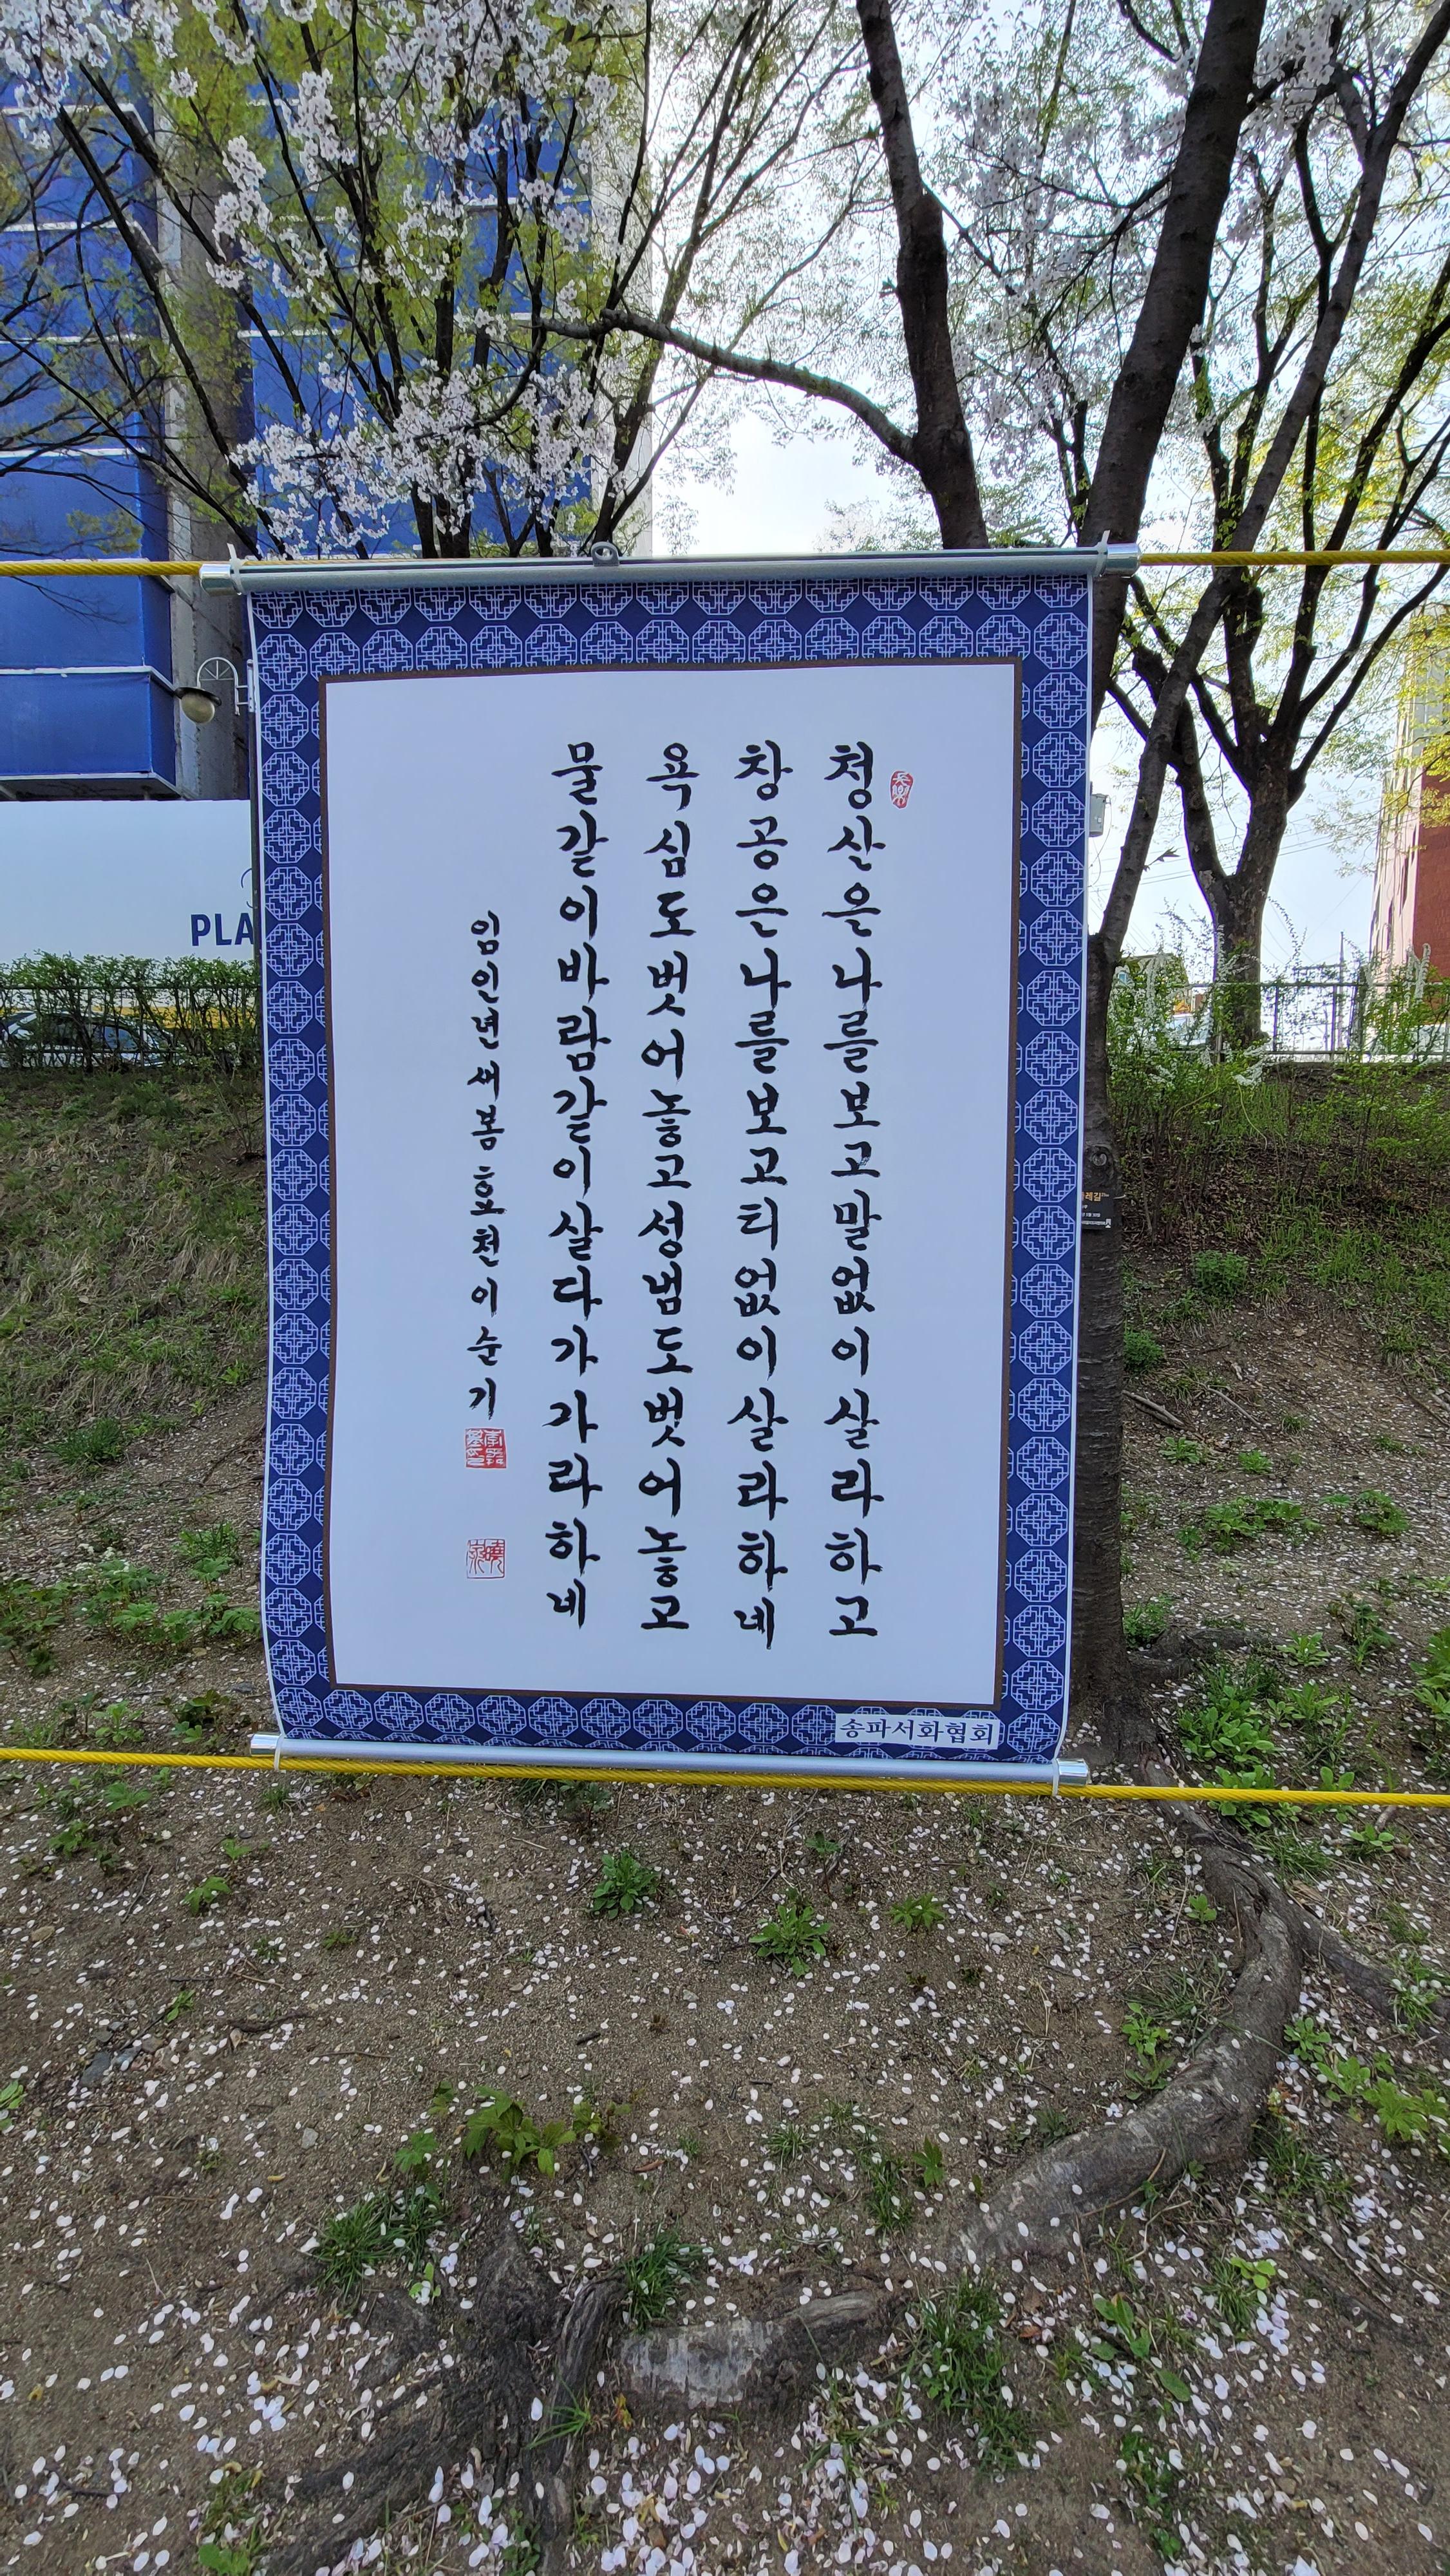 청산은나를보고말없이살라하고
창공은나를보고티없이살라하네
욕심도벗어놓고성냄도벗어놓고
물같이바람같이살다가가라하네
임인년새봄효천이순기
송파서화협회
PLA